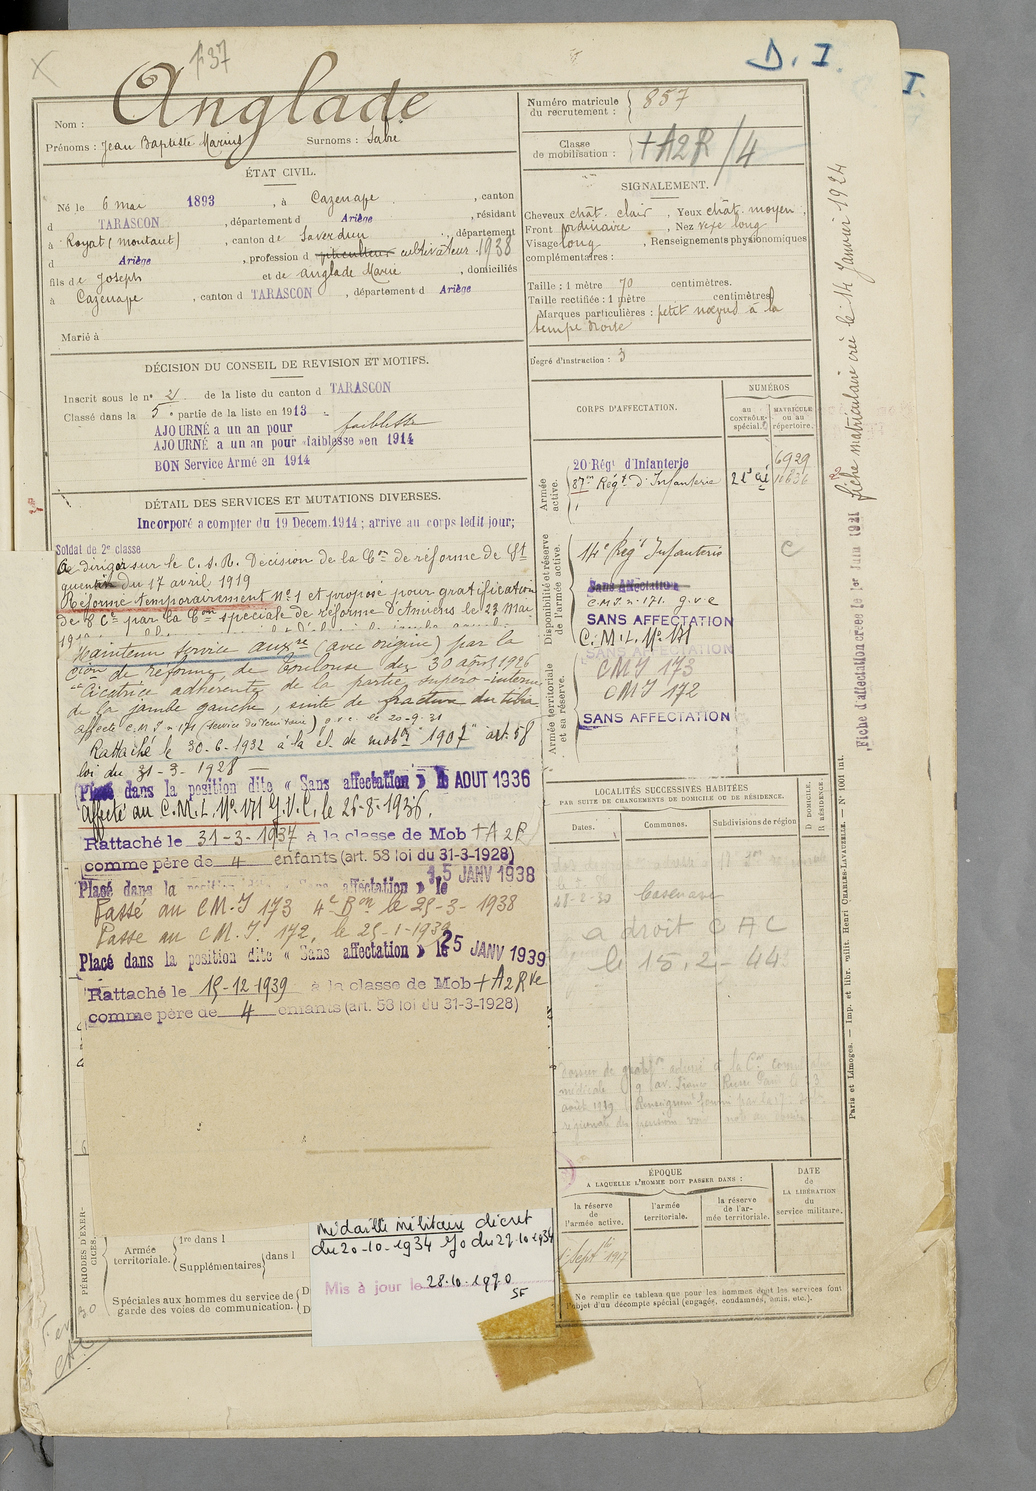 137
D. I.
I.
Nom : Anglade
Prénoms : Jean Baptiste Marius Surnoms : Sabié
Numéro matricule du recrutement : 857
Classe de mobilisation : + A2R / 4
ÉTAT CIVIL.
Né le 6 mai 1893, à Cazenave, canton
d TARASCON, département d Ariège, résidant
à Royat (Montaut), canton de Saverdun, département
d Ariège, profession d cultivateur 1938
fils de Joseph et de Anglade Marie, domiciliés
à Cazenave, canton d TARASCON, département d Ariège
Marié à
SIGNALEMENT.
Cheveux chât. clair, Yeux chât. moyen,
Front ordinaire, Nez vexe long
Visage long, Renseignements physionomiques
complémentaires :
Taille : 1 mètre 70 centimètres.
Taille rectifiée : 1 mètre centimètres.
Marques particulières : petit nœvus à la
tempe droite
Degré d'instruction : 3
DÉCISION DU CONSEIL DE REVISION ET MOTIFS.
Inscrit sous le n° 21 de la liste du canton d TARASCON
Classé dans la 5e partie de la liste en 1913
AJOURNÉ a un an pour faiblesse
AJOURNÉ a un an pour «faiblesse» en 1914
BON Service Armé en 1914
DÉTAIL DES SERVICES ET MUTATIONS DIVERSES.
Incorporé a compter du 19 Decem. 1914 ; arrive au corps ledit jour;
Soldat de 2e classe
Se diriger sur le C.S.R. Decision de la Con de réforme de St
quentin du 17 avril 1919
Réformé temporairement N°1 et proposé pour gratification
de 8e Cie par la Con spéciale de réforme d'Amiens le 23 Mai
Maintenu service auxre (avec origine) par la
Cion de réforme de Toulouse du 30 août 1926
Cicatrice adhérente de la partie supéro-interne
de la jambe gauche, suite de fracture du tibia
Affecté C.M.I. n° 171 (service du territoire) g.v.c. le 20-9-31
Rattaché le 30-6-1932 à la cl. de mobon 1907 art. 58
loi du 31-3-1928
Placé dans la position dite « Sans affectation » le AOUT 1936
Affecté au C.M.I. N° 171 G.V.C. le 26-8-1936.
Rattaché le 31-3-1937 à la classe de Mob + A2R
comme père de 4 enfants (art. 58 loi du 31-3-1928)
Placé dans la position dite « Sans affectation » le 15 JANV 1938
Passé au CM.I 173 4e Bon le 25-3-1938
Passé au CM.I. 172, le 25-1-1939
Placé dans la position dite « Sans affectation » le 25 JANV 1939
Rattaché le 15-12-1939 à la classe de Mob + A2R
comme père de 4 enfants (art. 58 loi du 31-3-1928)
CORPS D'AFFECTATION.
NUMÉROS
au CONTRÔLE spécial.
MATRICULE ou au répertoire.
Armée active.
20 Régt d'Infanterie 6929
87me Régt d'Infanterie 10836
Disponibilité et réserve de l'armée active.
14e Régt Infanterie
Sans Affectation
C.M.I. n° 171. g.v.c
SANS AFFECTATION
C.M.I. N° 171
Armée territoriale et sa réserve.
SANS AFFECTATION
CMI 173
CMI 172
SANS AFFECTATION
LOCALITÉS SUCCESSIVES HABITÉES
PAR SUITE DE CHANGEMENTS DE DOMICILE OU DE RÉSIDENCE.
Dates.
Communes.
Subdivisions de région
D DOMICILE.
R RÉSIDENCE.
28-2-30 Cazenave
a droit CAC
le 15.2-44
ÉPOQUE
A LAQUELLE L'HOMME DOIT PASSER DANS :
la réserve de l'armée active.
l'armée territoriale.
la réserve de l'armée territoriale.
DATE de LA LIBÉRATION du service militaire.
1 Septbre 1917
Ne remplir ce tableau que pour les hommes dont les services font
l'objet d'un décompte spécial (engagés, condamnés, omis, etc.).
PÉRIODES D'EXERCICES.
Armée territoriale.
1re dans l
Supplémentaires
dans l
Spéciales aux hommes du service de
garde des voies de communication.
Médaille militaire décret
du 20-10-1934 JO du 27.10.1934
Mis à jour le 28.10.1970
SF
fiche matriculaire créée le 14 Janvier 1924
Fiche d'affectation créée le 1er Juin 1921
Paris et Limoges. — Imp. et libr. milit. Henri CHARLES-LAVAUZELLE. — N° 1001 int.